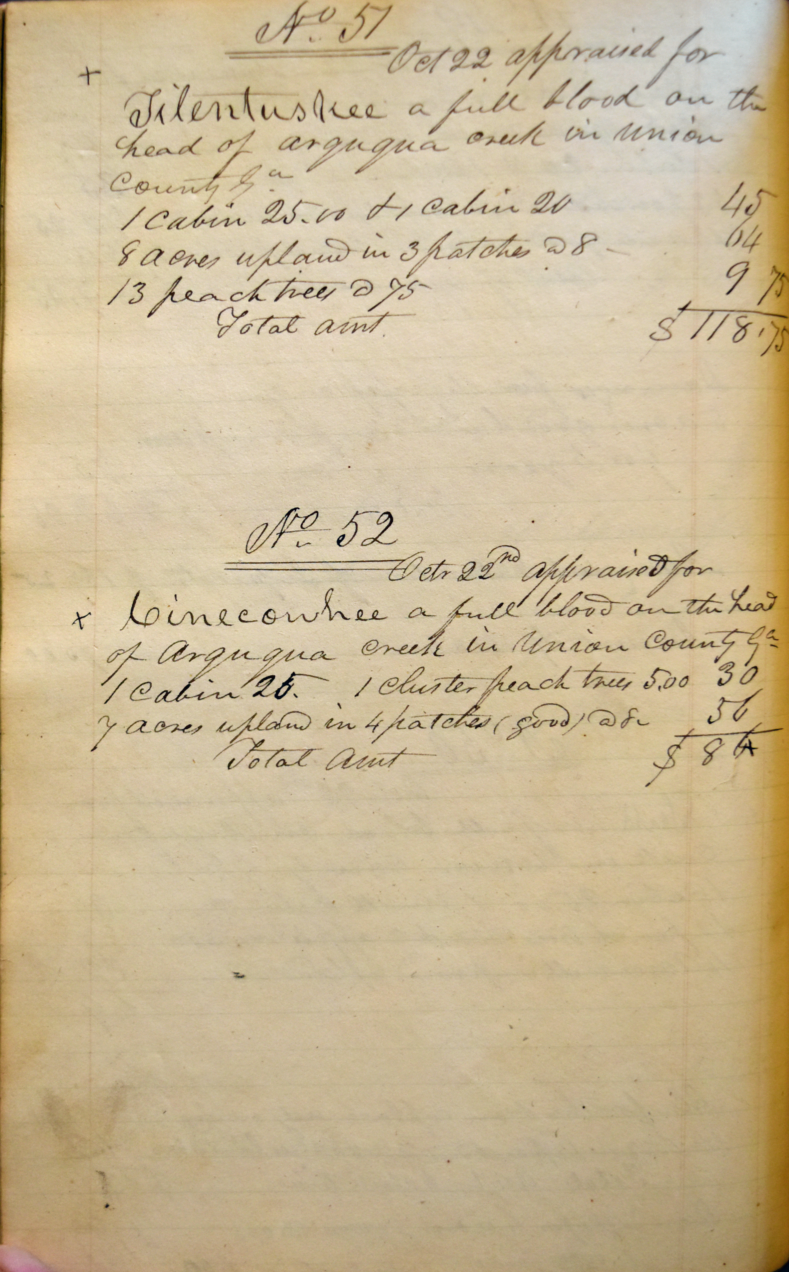 No. 51
Oct 22 appraised for
+ Tilentuskee a full blood on the
head of arguqua creek in Union
County Ga
1 cabin 25.00 & 1 cabin 20 45
8 acres upland in 3 patches @ 8 - 64
13 peach trees @ 75 9 75
Total amt $ 118.75
No. 52
Octr 22nd appraised for
x Cineconhee a full blood on the head
of Arguqua creek in Union County Ga
1 cabin 25. 1 cluster peach trees 5.00 30
7 acres upland in 4 patches (good) @ 8- 56
Total Amt $ 86